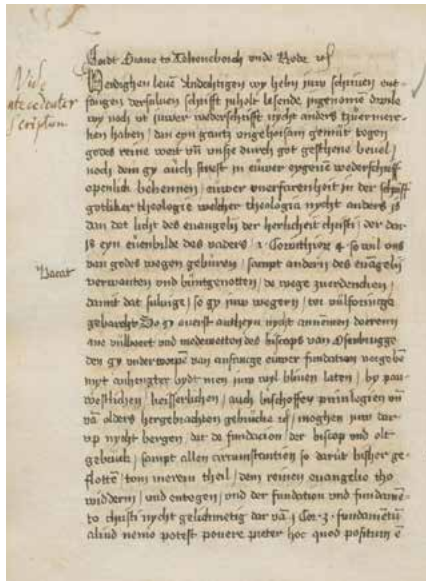 Vide
antecedenter
scriptum
Vacat
Werdighen leven Andechtigen wy hebn juw schriven ent-
fangen dersulven schrifft inholt lesende ingenomen
wy noch ut juwer wederschrifft nycht anders
hen haben / dan eyn gantz ungehorsam gemüt tegen
godes reine wort vnd vnße durch got gescheene bevel /
noch dem gy auch sulvest in euwer eygenen wederschrifft
openlich bekennen / euwer unerfarenheit in der schrifft
gotliker theologie welcher theologia nycht anders is
dan dat licht des euangelii der herlicheit christi / der dar
is eyn euenbilde des vaders / 2 Corinthior 4 so wil vns
van godes wegen gebüren / sampt andern des euangelii
verwanten vnd büntgenoten / de wege zuerdencken /
damit dat sulvige / so gy juw wegern / tot
gy auerst nycht annemen
ane vulbort vnd medeweten des biscops van Osenbrugge
den gy vnderworpen van anfancge euwer fundation
angehengter bydt men juw wyl bliven laten / by paw-
westlichen / keisserlichen / auch bischoffen priuilegien vnd
van olders hergebrachten gebrüche / moghen juw dar
vp nycht bergen / dat de fundation der biscop vnd olt
gebruck / sampt allen circumstantien so darüt bisher ge-
flotten / tom meren theil / dem reinen euangelio tho
widdern / vnd entegen / vnd der fundation vnd fundamen-
to christi nycht gelichmetig dar van 1 Cor. 3. fundamentum
aliud nemo potest ponere preter hoc quod positum e